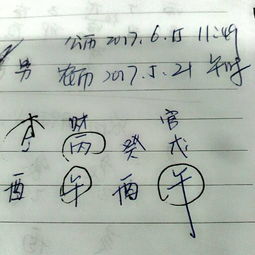 公历 2017.6.15 11:49
男 农历 2017.5.21 午时
财 官
丙 癸 戊
酉 午 酉 午